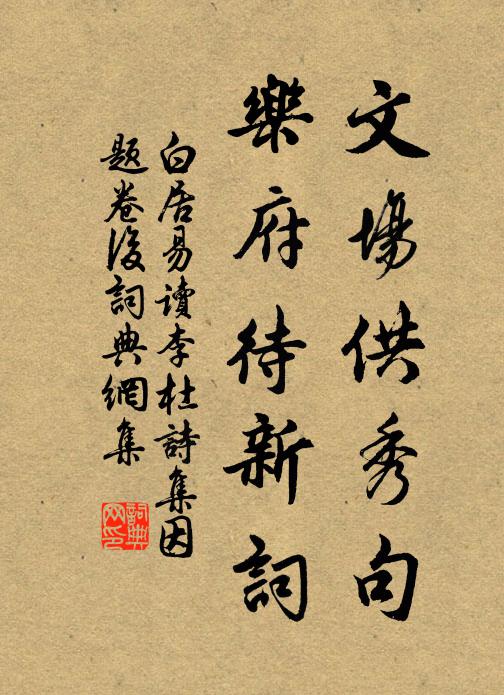 文場供秀句
樂府待新詞
白居易讀李杜詩集因
題卷後詞典網集
詞典
网印